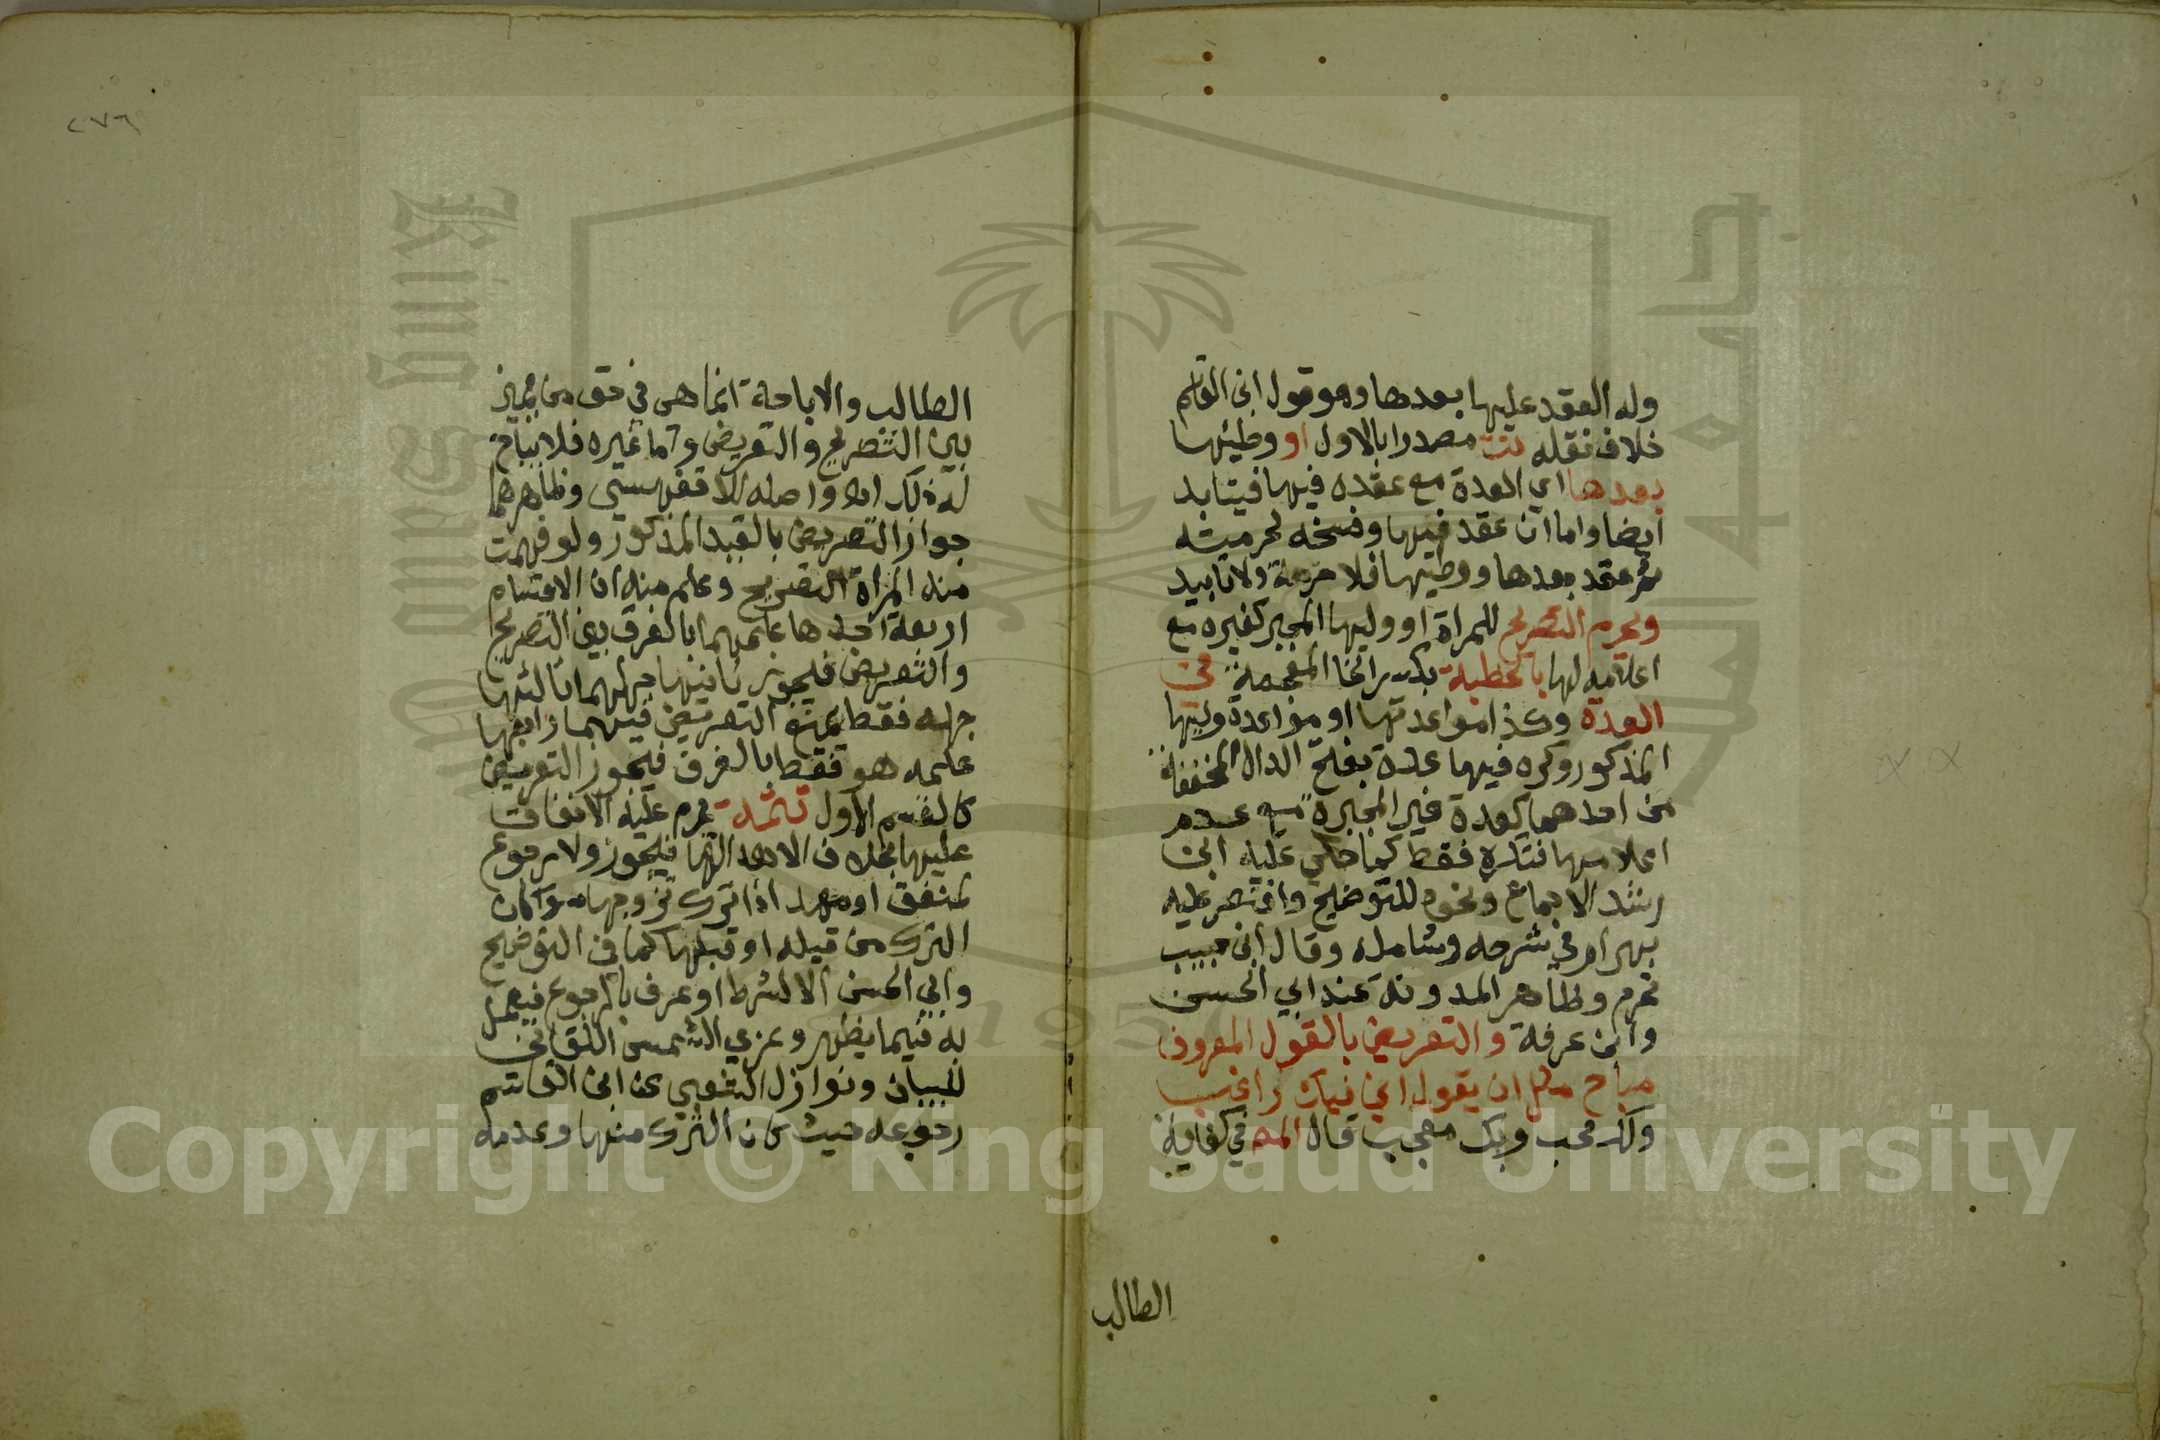 وله العقد عليها بعدها وهو قول ابن القاسم
خلاف نقله تت مصدرا بالاول او وطيئها
بعدها اي العدة مع عقده فيها فيتابد
ايضا واما ان عقد فيها وفسخه لحرميته
ثم عقد بعدها ووطيها فلا حرمة ولا تابيد
ويحرم التصريح للمراة او وليها المجبر كغيره مع
اعلامه لها بالخطبة بكسر الخا المعجمة في
العدة وكذا مواعدتها او مواعدة وليها
المذكور وكره فيها عدة بفتح الدال المخففة
من احدهما كعدة غير المجبره مع عدم
اعلامها فتكره فقط كما حكى عليه ابن
رشد الاجماع ونحوه للتوضيح واقتصر عليه
بهرام في شرحه وشامله وقال ابن حبيب
تحرم وظاهر المدونة عند ابي الحسن
وابن عرفة والتعريض بالقول المعروف
مباح مثل ان يقول اني فيك راغب
ولك محب وبك معجب قال المص في كفاية
الطالب
٢٧٦
الطالب والاباحة انما هي في حق من يميز
بين التصريح والتعريض واما غيره فلا يباح
له ذلك اه واصله للاقفهسي وظاهرهما
جواز التعريض بالقيد المذكور ولو فهمت
منه المراة التصريح وعلم منه ان الاقسام
اربعة احدها علمهما بالفرق بين التصريح
والتعريض فيجوز ثانيها جهلهما ثالثها
جهله فقط يمنع التعريض فيهما رابعها
علمه هو فقط بالفرق فيجوز التعريض
كالقسم الاول تتمة يحرم عليه الانفاق
عليها بخلاف الاهدا لها فيجوز ولا رجوع
لمنفق او مهد اذا ترك تزوجها وكان
الترك من قبله او قبلها كما في التوضيح
وابي الحسن الا لشرط او عرف بالرجوع فيعمل
به فيما يظهر وعزي الشمس اللقاني
للبيان ونوازل عن ابن القاسم
رجوعه حيث كان الترك منها وعدمه
King Saud University
1957
Copyright © King Saud University